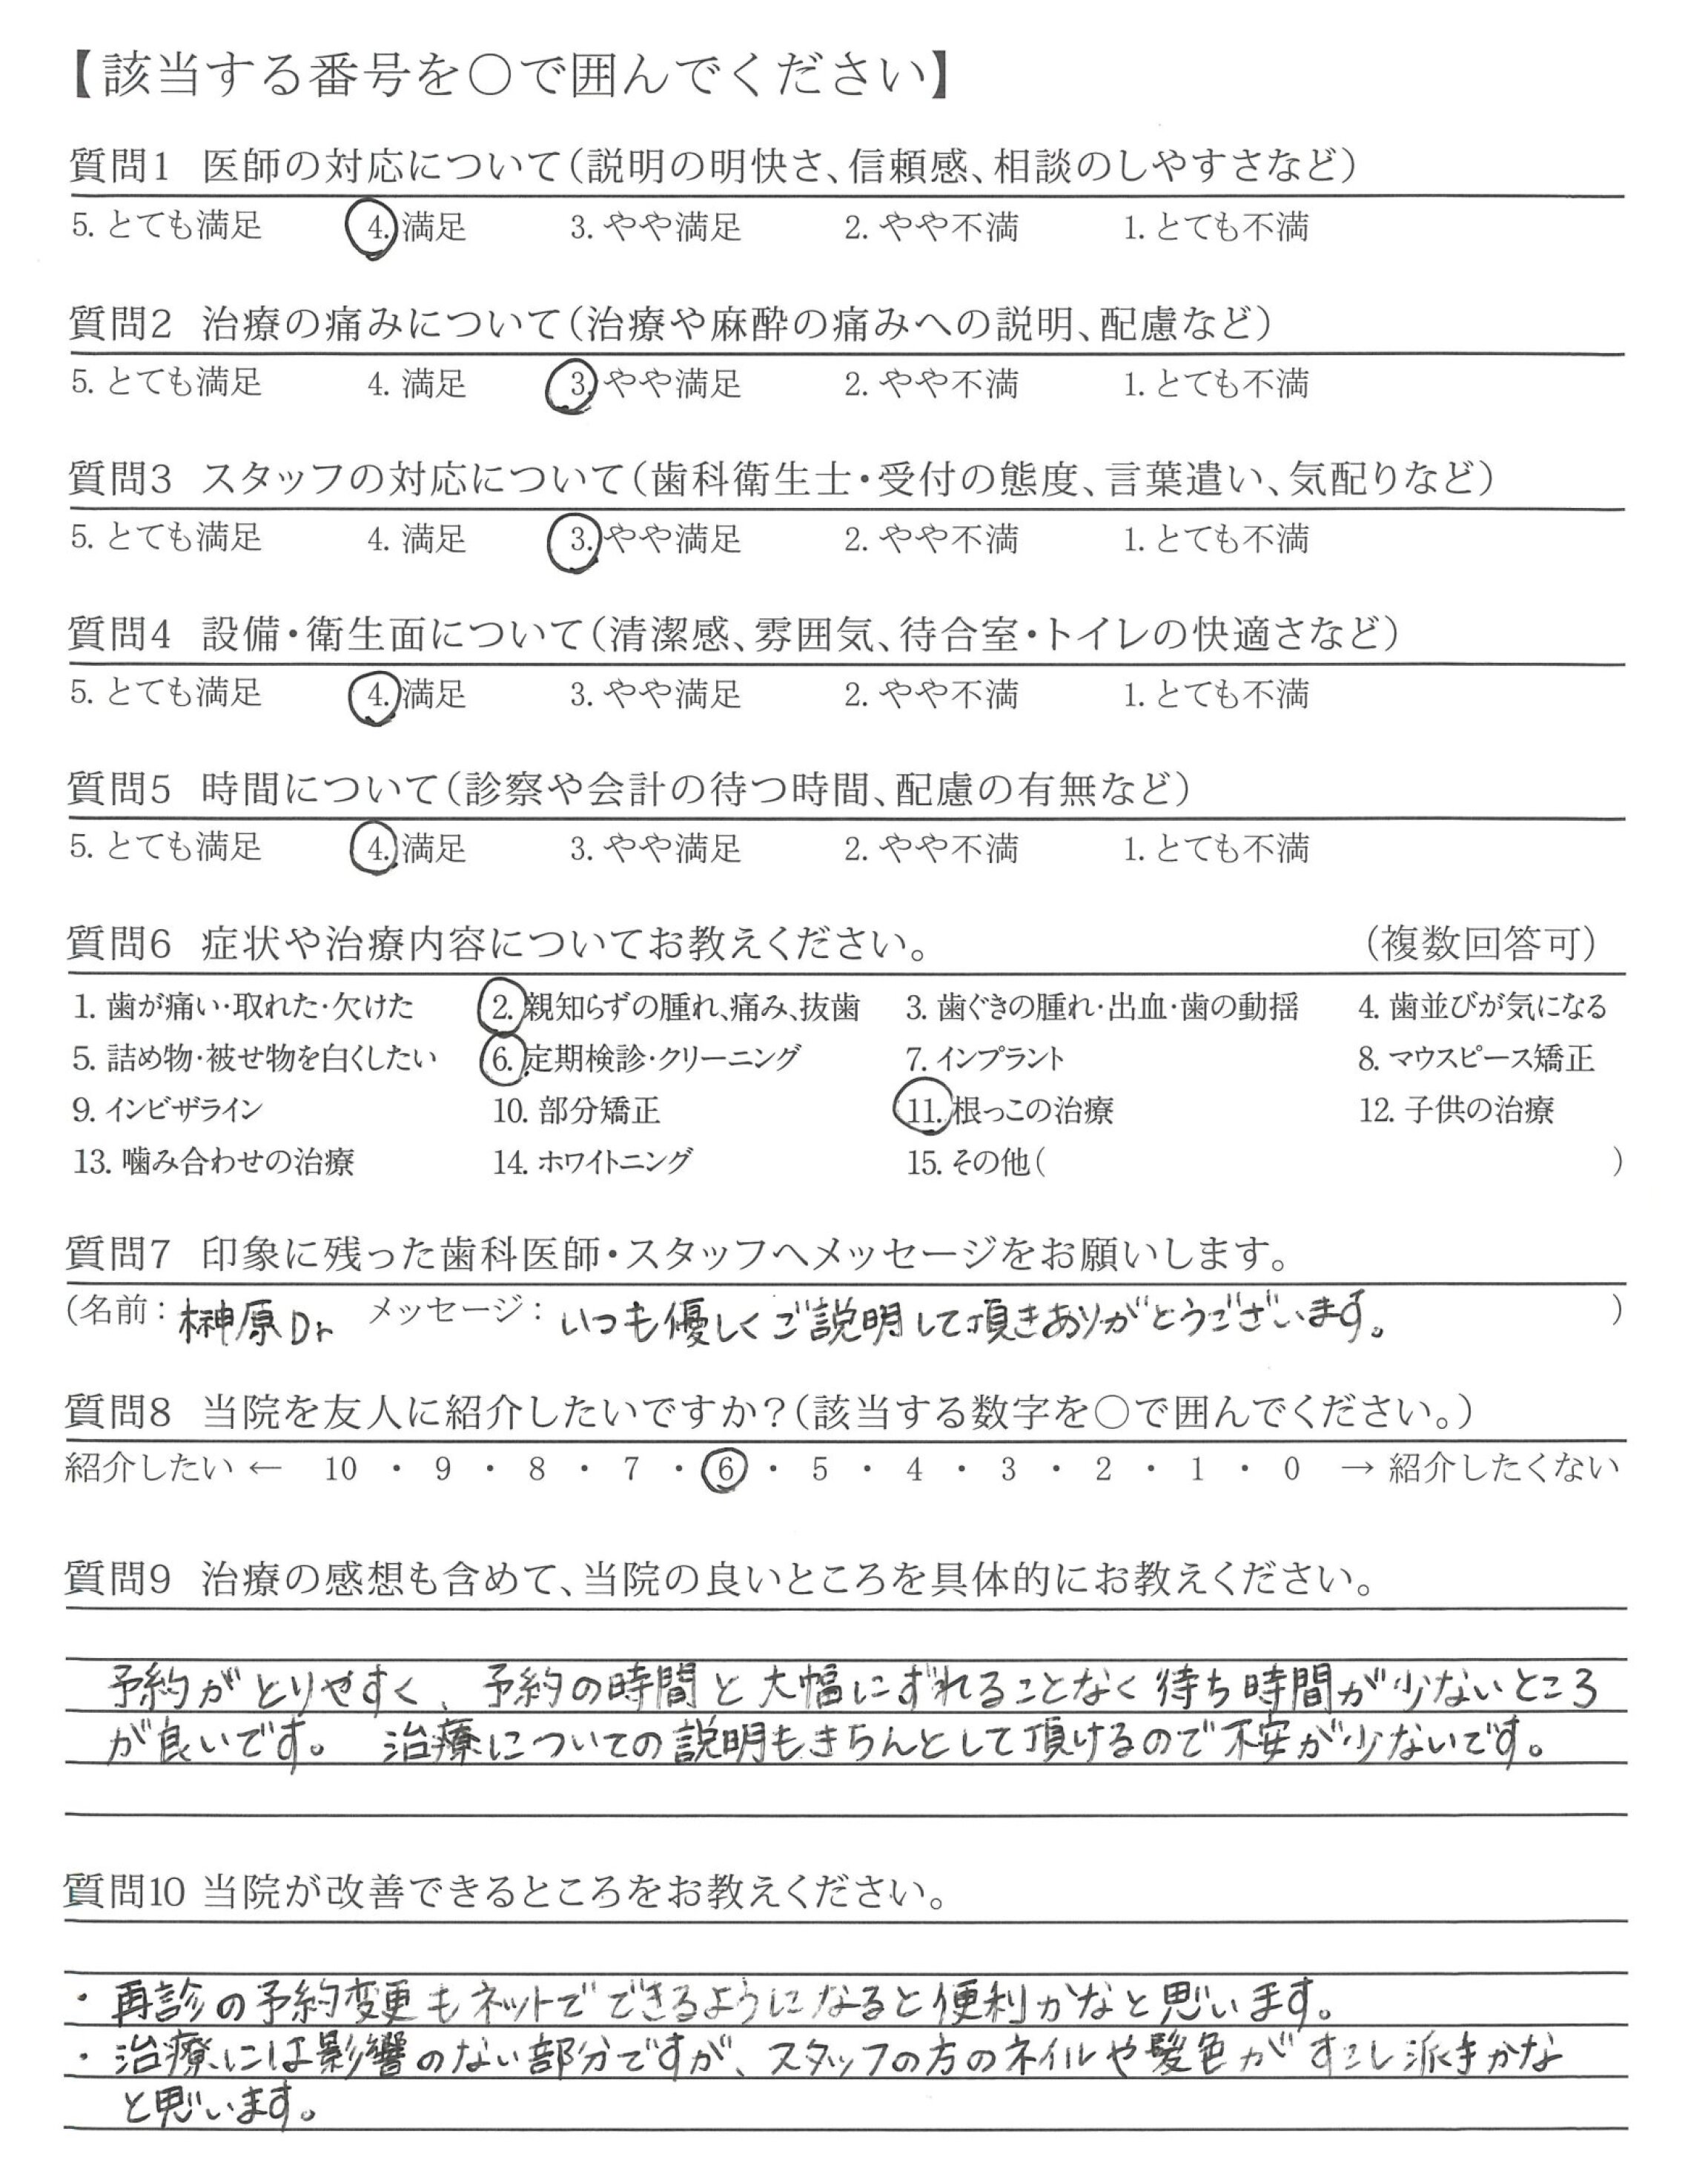 【該当する番号を○で囲んでください】
質問1 医師の対応について（説明の明快さ、信頼感、相談のしやすさなど）
5. とても満足 4. 満足 3. やや満足 2. やや不満 1. とても不満
質問2 治療の痛みについて（治療や麻酔の痛みへの説明、配慮など）
5. とても満足 4. 満足 3. やや満足 2. やや不満 1. とても不満
質問3 スタッフの対応について（歯科衛生士・受付の態度、言葉遣い、気配りなど）
5. とても満足 4. 満足 3. やや満足 2. やや不満 1. とても不満
質問4 設備・衛生面について（清潔感、雰囲気、待合室・トイレの快適さなど）
5. とても満足 4. 満足 3. やや満足 2. やや不満 1. とても不満
質問5 時間について（診察や会計の待つ時間、配慮の有無など）
5. とても満足 4. 満足 3. やや満足 2. やや不満 1. とても不満
質問6 症状や治療内容についてお教えください。 （複数回答可）
1. 歯が痛い・取れた・欠けた 2. 親知らずの腫れ、痛み、抜歯 3. 歯ぐきの腫れ・出血・歯の動揺 4. 歯並びが気になる
5. 詰め物・被せ物を白くしたい 6. 定期検診・クリーニング 7. インプラント 8. マウスピース矯正
9. インビザライン 10. 部分矯正 11. 根っこの治療 12. 子供の治療
13. 噛み合わせの治療 14. ホワイトニング 15. その他（ ）
質問7 印象に残った歯科医師・スタッフへメッセージをお願いします。
（名前：榊原Dr メッセージ：いつも優しくご説明して頂きありがとうございます。 ）
質問8 当院を友人に紹介したいですか？（該当する数字を○で囲んでください。）
紹介したい ← 10 ・ 9 ・ 8 ・ 7 ・ 6 ・ 5 ・ 4 ・ 3 ・ 2 ・ 1 ・ 0 → 紹介したくない
質問9 治療の感想も含めて、当院の良いところを具体的にお教えください。
予約がとりやすく、予約の時間と大幅にずれることなく待ち時間が少ないところ
が良いです。 治療についての説明もきちんとして頂けるので不安が少ないです。
質問10 当院が改善できるところをお教えください。
・再診の予約変更もネットでできるようになると便利かなと思います。
・治療には影響のない部分ですが、スタッフの方のネイルや髪色がすこし派手かな
と思います。